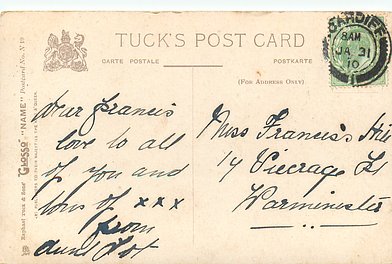 TUCK'S POST CARD
CARTE POSTALE
POSTKARTE
(FOR ADDRESS ONLY)
CARDIFF
8 AM
JA 31
10
1
Raphael Tuck & Sons' "GLOSSO" "NAME" Postcard No. N 19
Dear Francis
love to all
of you and
tons of xxx
from
aunt Dot
Miss Francis's Hill
14 Vicarage St
Warminster